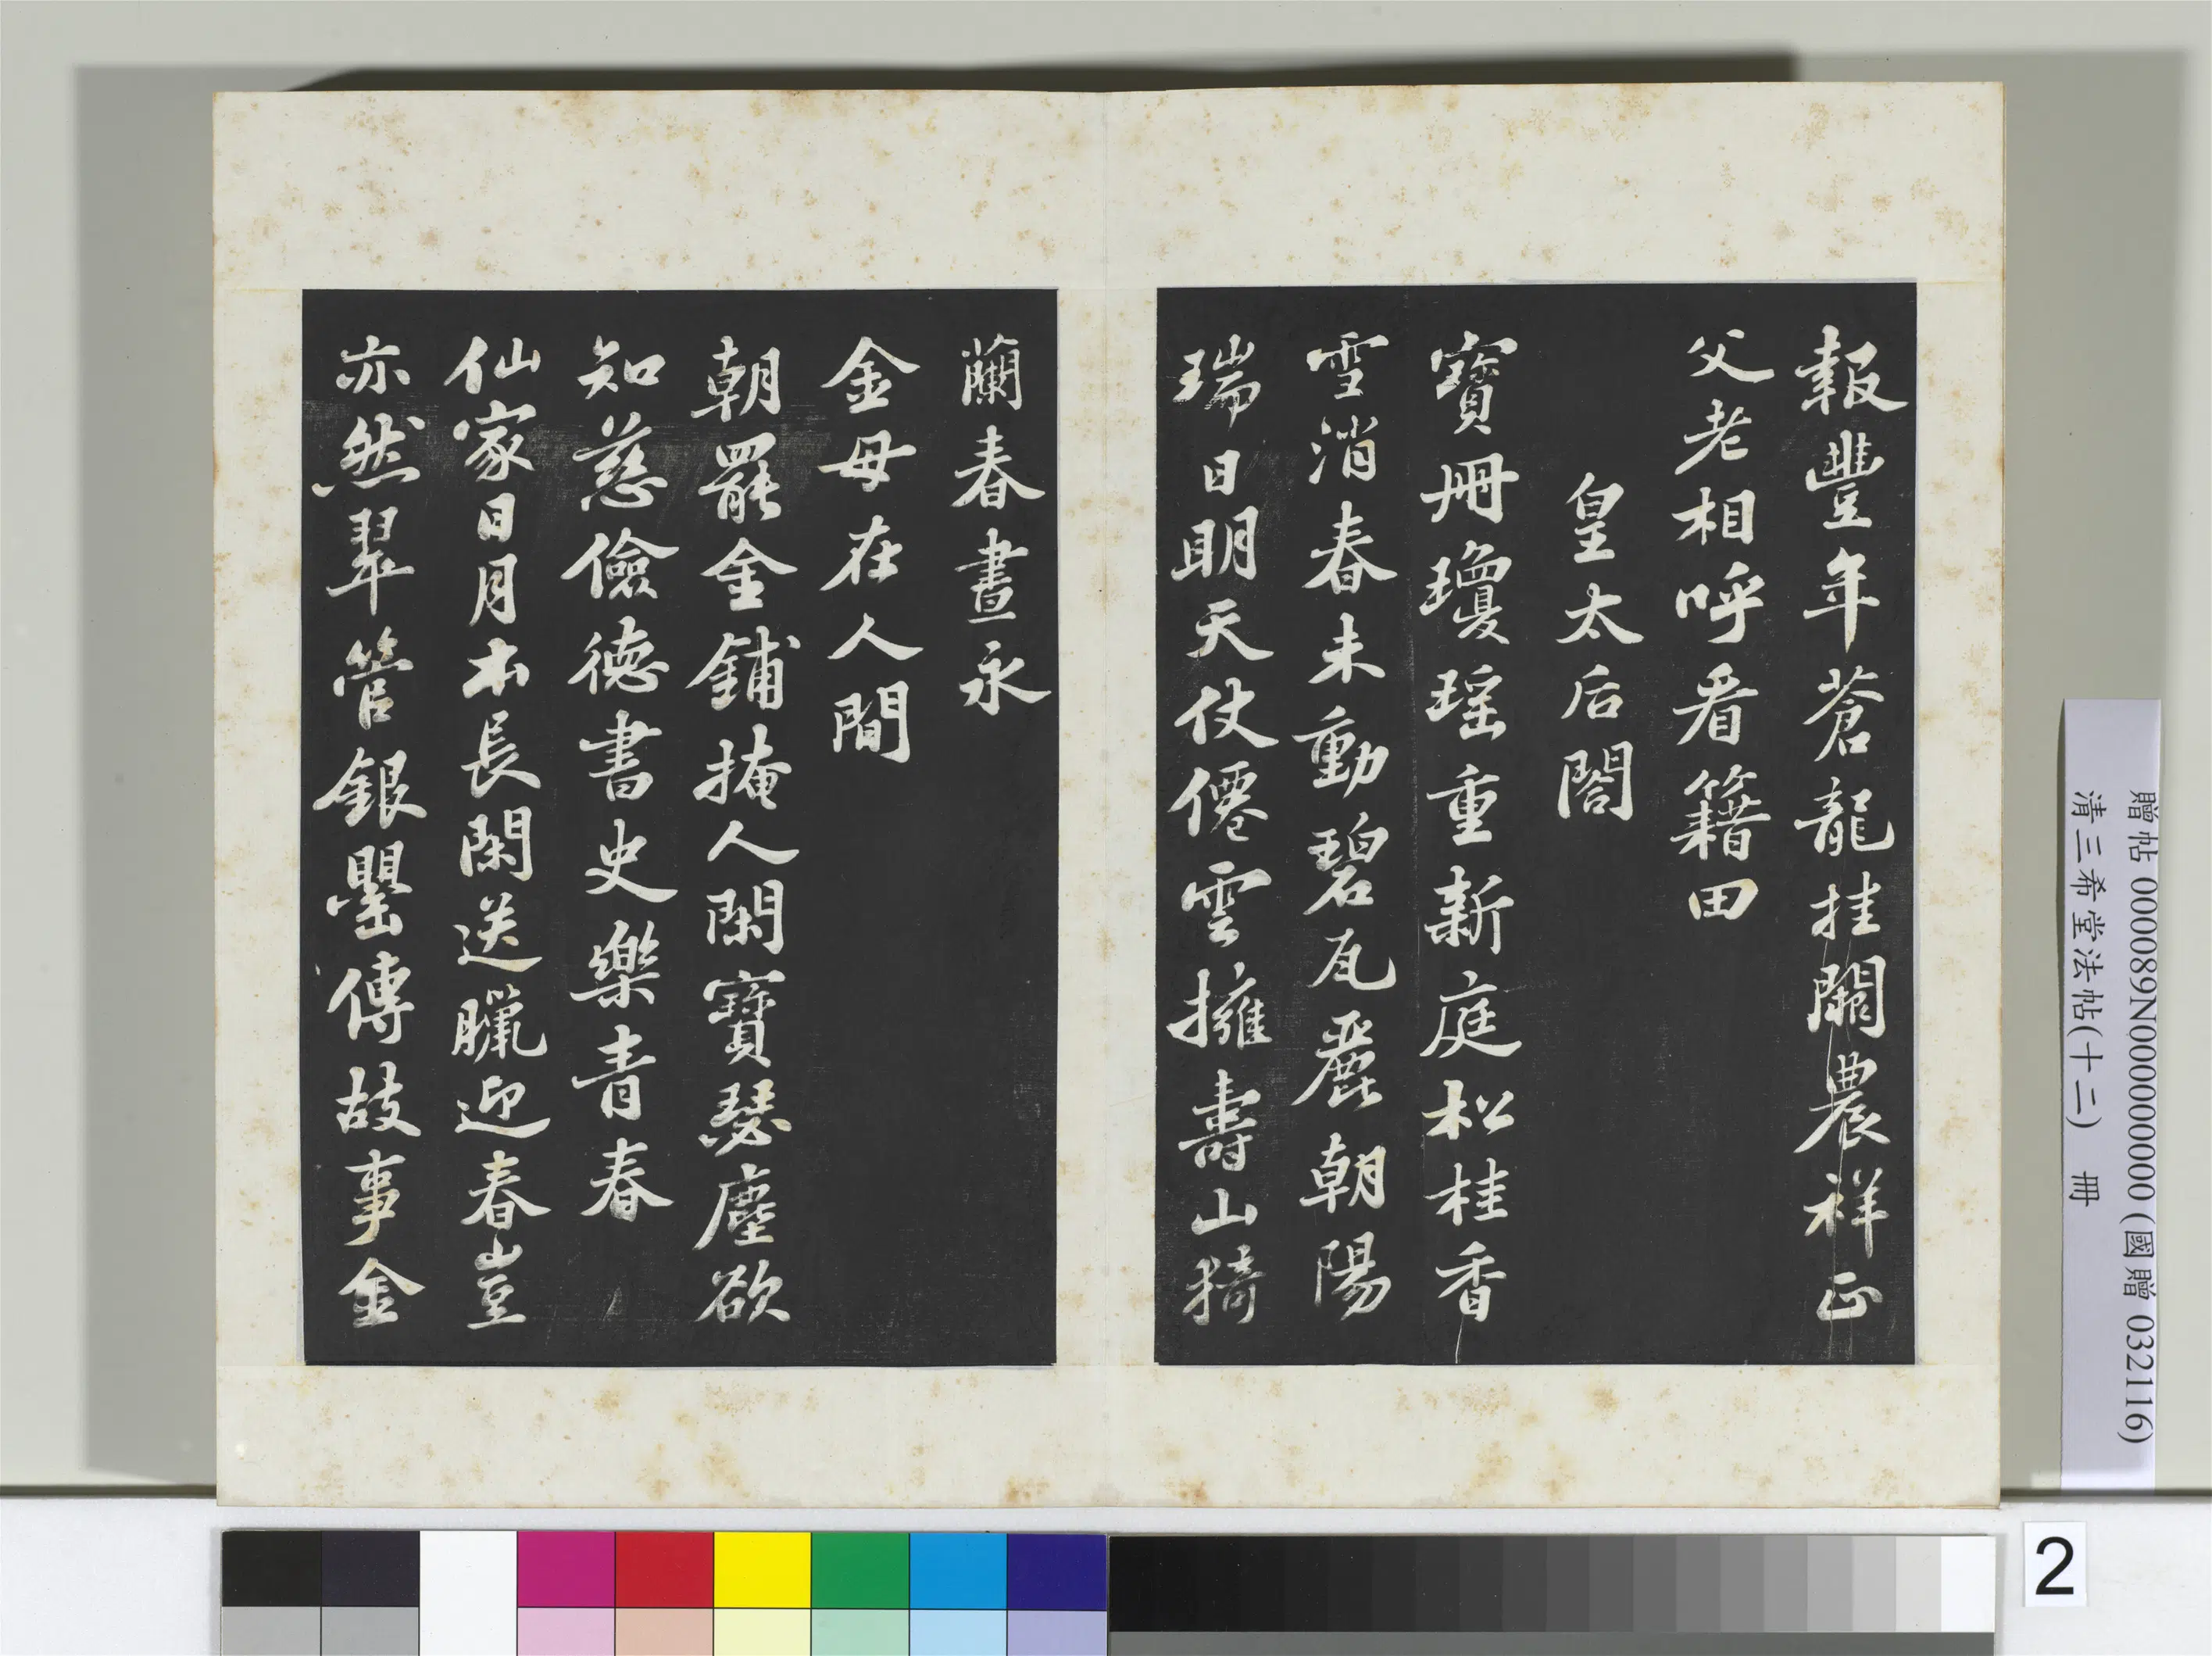 報豐年蒼龍挂闕農祥正
父老相呼看籍田
皇太后閤
寶冊瓊瑶重新庭松桂香
雪消春未動碧瓦麗朝陽
瑞日明天仗僊雲擁壽山猗
蘭春晝永
金母在人間
朝罷金鋪掩人閑寶瑟塵欲
知慈儉德書史樂青春
仙家日月本長閑送臘迎春豈
亦然翠管銀罌傳故事金
贈帖 000089N000000000 (國贈 032116)
清三希堂法帖(十二) 冊
2